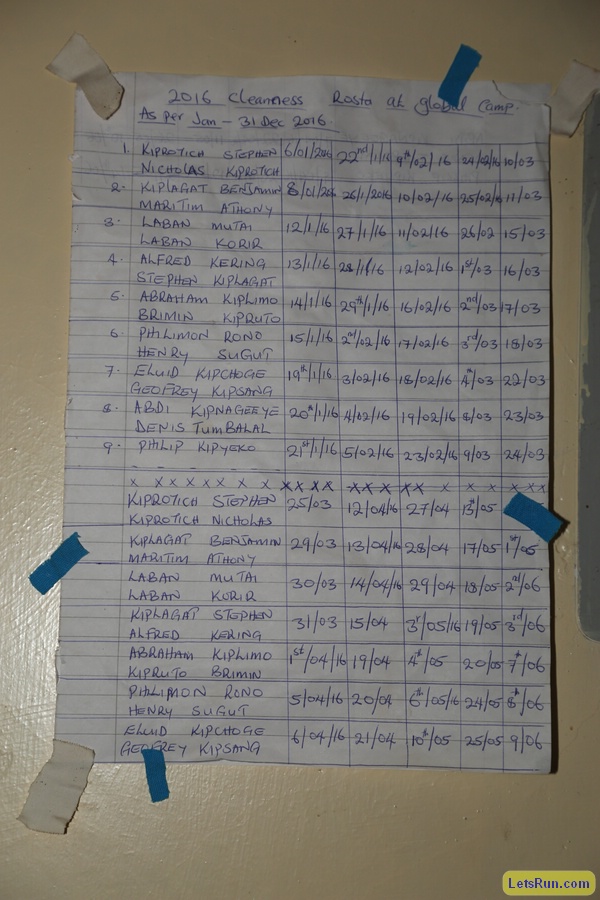 2016 Cleanness Rosta at global Camp.
As per Jan – 31 Dec 2016.
1. KIPROTICH STEPHEN 6/01/2016 22nd/1/16 9th/02/16 24/02/16 10/03
NICHOLAS KIPROTICH
2. KIPLAGAT BENJAMIN 8/01/206 26/1/2016 10/02/16 25/02/16 11/03
MARITIM ATHONY
3. LABAN MUTAI 12/1/16 27/1/16 11/02/16 26/02 15/03
LABAN KORIR
4. ALFRED KERING 13/1/16 28/1/16 12/02/16 1st/03 16/03
STEPHEN KIPLAGAT
5. ABRAHAM KIPLIMO 14/1/16 29th/1/16 16/02/16 2nd/03 17/03
BRIMIN KIPRUTO
6. PHILIMON RONO 15/1/16 2nd/02/16 17/02/16 3rd/03 18/03
HENRY SUGUT
7. ELUID KIPCHOGE 19th/1/16 3/02/16 18/02/16 4th/03 22/03
GEOFREY KIPSANG
8. ABDI KIPNAGEEYE 20th/1/16 4/02/16 19/02/16 8/03 23/03
DENIS TUMBALAL
9. PHILIP KIPYEKO 21st/1/16 5/02/16 23/02/16 9/03 24/03
- - - -
x x x x x x x x x x x x x x x x x x x x x x
KIPROTICH STEPHEN 25/03 12/04/16 27/04 13th/05
KIPROTICH NICHOLAS
KIPLAGAT BENJAMIN 29/03 13/04/16 28/04 17/05 1st/05
MARITIM ATHONY
LABAN MUTAI 30/03 14/04/16 29/04 18/05 2nd/06
LABAN KORIR
KIPLAGAT STEPHEN 31/03 15/04 3r/05/16 19/05 3rd/06
ALFRED KERING
ABRAHAM KIPLIMO 1st/04/16 19/04 4th/05 20/05 7th/06
KIPRUTO BRIMIN
PHILIMON RONO 5/04/16 20/04 6th/05/16 24/05 8th/06
HENRY SUGUT
ELUID KIPCHOGE 6/04/16 21/04 10th/05 25/05 9/06
GEOFREY KIPSANG
LetsRun.com